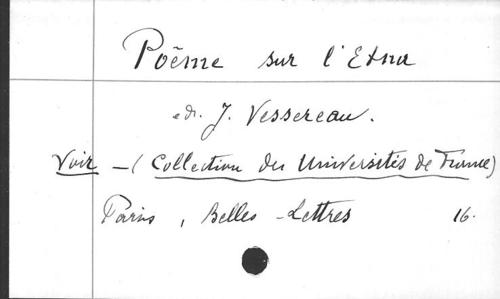 Poëme sur l'Etna
ed. J. Vessereau.
Voir – (Collection des Universités de France)
Paris, Belles-Lettres 16.